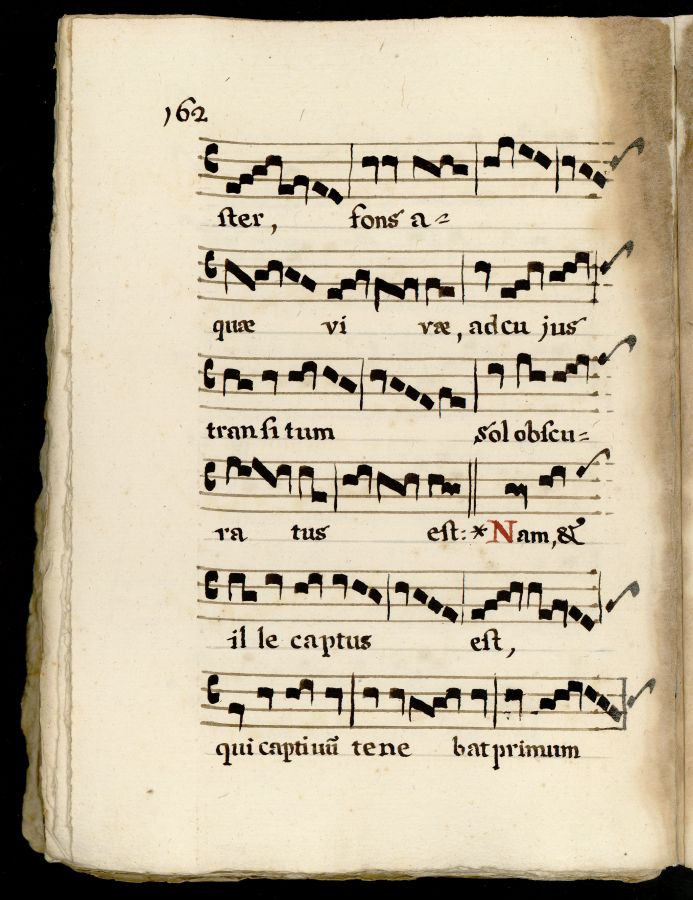 162
ster, fons a=
quæ vi væ, ad cu jus
tran si tum sol obscu=
ra tus est: * Nam, &
il le captus est,
qui captiuũ te ne bat primum